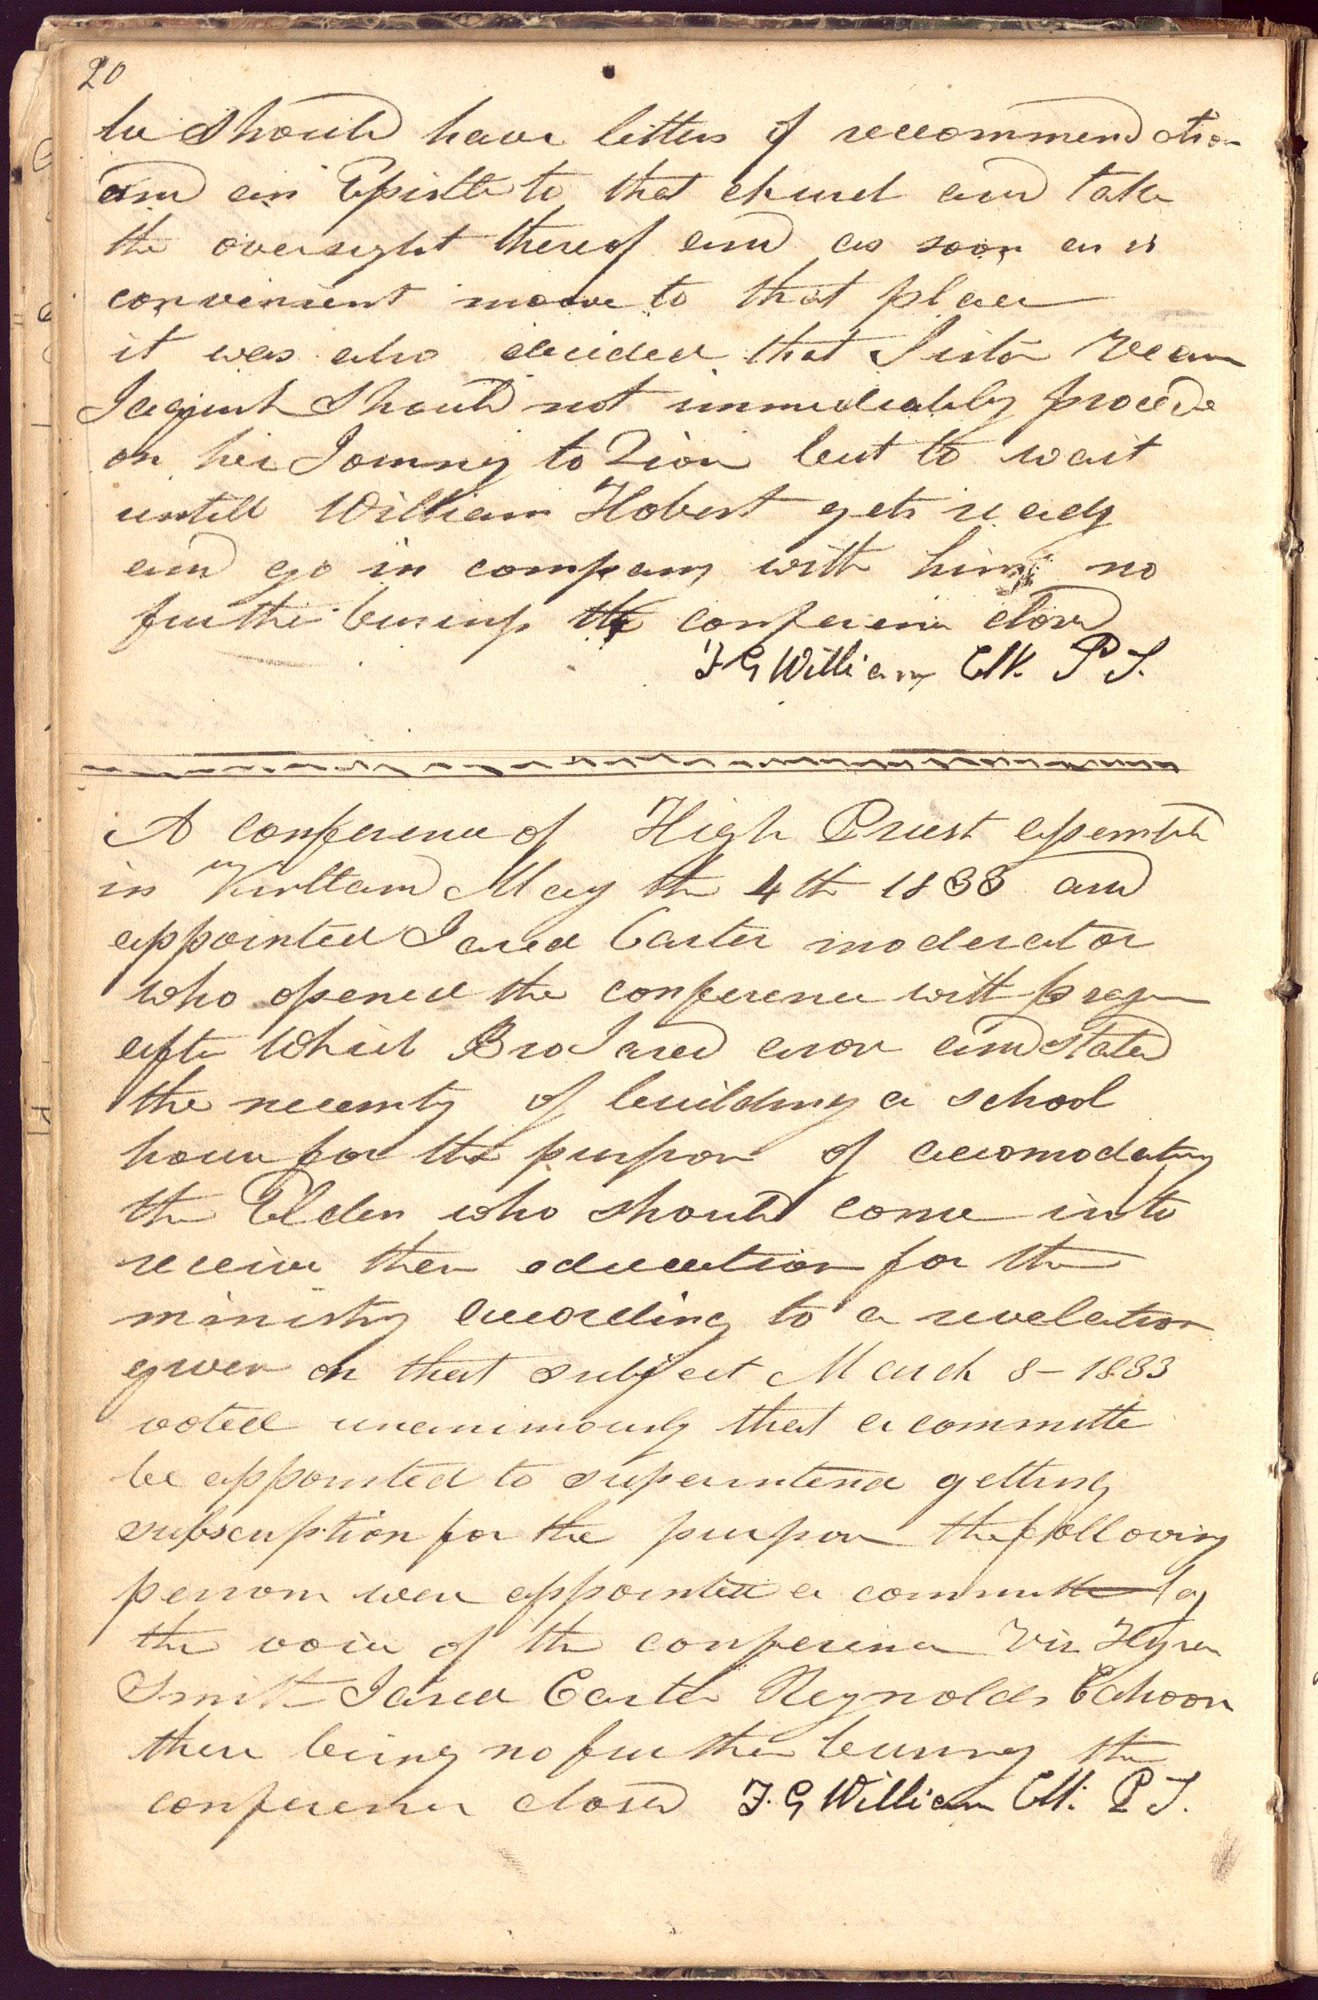 20
he should have letters of reccommendation
and an Epistle to that church and take
the oversight thereof and as soon as is
convenient moove to that place
it was also decided that Sister Vean
Jaquish should not immediately procede
on her Journey to Zion but to wait
untill William Hobert gets ready
and go in company with him no
further business the conference closed
F G Williams Clk. P T.
A conference of High Priest assembled
in Kirtland May the 4th 1833 and
appointed Jared Carter moderator
who opened the conference with prayer
after which Bro Jared arose and stated
the necessity of building a school
house for the purpose of accomodating
the Elders who should come in to
receive their education for the
ministry according to a revelation
given on that subject March 8– 1833
voted unanimously that a committe
be appointed to superintend getting
subscription for the purpose the following
persons were appointed a committe by
the voice of the conference Viz Hyram
Smith Jared Carter Reynolds Cahoon
there being no further business the
conference closed F. G Williams Clk. P T.